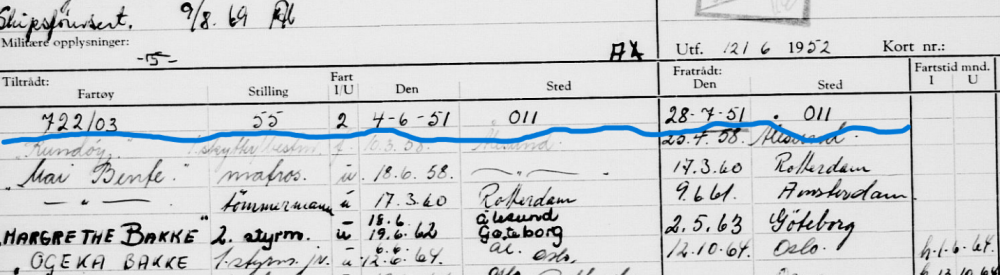 Skipsførersert. 9/8. 69
Militære opplysninger:
-15-
Utf. 12/6 1952 Kort nr.:
Tiltrådt: Fart Fratrådt: Fartstid mnd.
Fartøy Stilling I/U Den Sted Den Sted I U
722/03 55 2 4-6-51 011 28-7-51 011
"Rundøy" f. 10.3.58. Ålesund. 25.4.58. Ålesund.
"Mar Bente." matros. u. 18.6.58. — " — 17.3.60 Rotterdam
— " — tømmermann u 17.3.60 Rotterdam 9.6.61. Amsterdam
"MARGRETHE BAKKE" 2. styrm. u 18.6. 19.6.62 Ålesund Gøteborg 2.5.63 Göteborg
"OGEKA BAKKE 1. styrm. jr. u 6.6. 12.6.64. Ål. Oslo. 12.10.64. Oslo. h.1.6.64.
Oslo